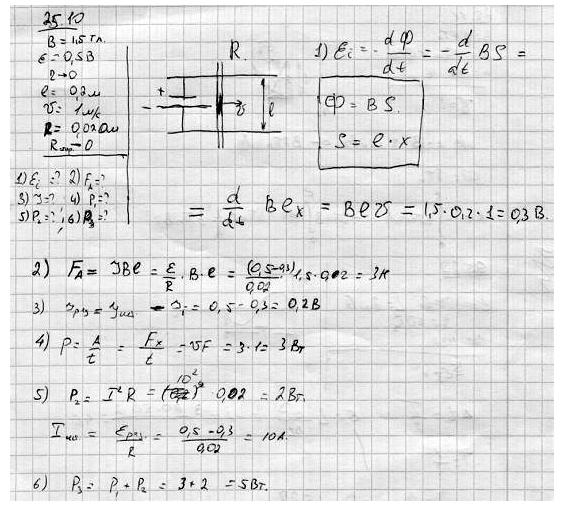 25.10
B = 1,5 Тл.
ε = 0,5 В
r → 0
l = 0,2 м
v = 1 м/с
R = 0,02 Ом
R → 0
1) εi = ? 2) FA = ?
3) J = ? 4) P1 = ?
5) P2 = ? 6) P3 = ?
R
+
−
v
l
1) εi = - dФ/dt = - d/dt BS =
Ф = BS.
S = l · x
= d/dt Blx = Blv = 1,5 · 0,2 · 1 = 0,3 В.
2) FA = JBl = ε/R · B · l = (0,5-0,3)/0,02 · 1,5 · 0,02 = 3 Н
3) - = 0,5 - 0,3 = 0,2 В
4) P = A/t = Fx/t = vF = 3 · 1 = 3 Вт
5) P2 = I²R = 10² · 0,02 = 2 Вт.
I = ε/R = 0,5 - 0,3/0,02 = 10 А.
6) P3 = P1 + P2 = 3 + 2 = 5 Вт.